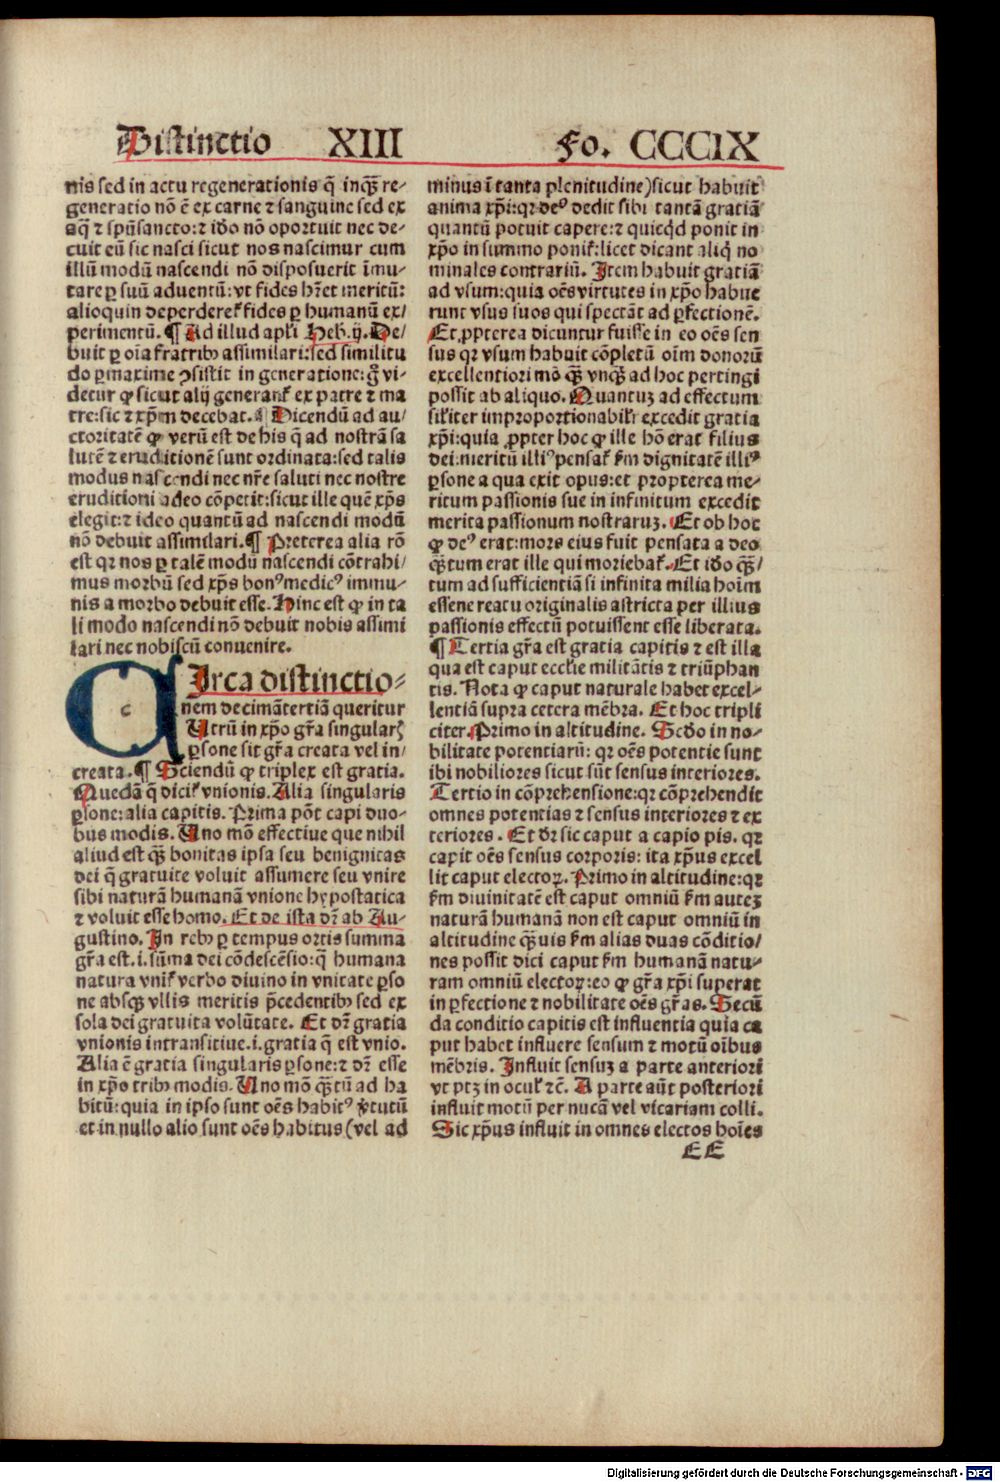 Distinctio XIII Fo. CCCIX
nis sed in actu regenerationis q̄ inqꝫ̄ re-
generatio nō ē ex carne ⁊ sanguine sed ex
aq̄ ⁊ spūsancto:⁊ iđo nō oportuit nec de-
cuit eū sic nasci sicut nos nascimur cum
illū modū nascendi nō disposuerit īmu-
tare ꝑ suū aduentū:vt fides hr̄et meritū:
alioquin deperderet᷑ fides ꝑ humanū ex/
perimentū. ¶ Ad illud apl̄i Heb. ij. De/
buit ꝑ oīa fratribꝰ assimilari:sed similitu
do ꝑmaxime ꝯsistit in generatione: gͦ vi-
detur ꝙ sicut alij generant᷑ ex patre ⁊ ma
tre:sic ⁊ xp̄m decebat. ¶ Dicendū ad au/
ctoritatē ꝙ verū est de his q̄ ad nostrā sa
lutē ⁊ eruditionē sunt ordinata:sed talis
modus nascendi nec nr̄e saluti nec nostre
eruditioni adeo cōpetit:sicut ille quē xp̄s
elegit:⁊ ideo quantū ad nascendi modū
nō debuit assimilari. ¶ Preterea alia rō
est qꝛ nos ꝑ talē modū nascendi cōtrahi/
mus morbū sed xp̄s bonꝰ medicꝰ immu-
nis a morbo debuit esse. Hinc est ꝙ in ta
li modo nascendi nō debuit nobis assimi
lari nec nobiscū conuenire.
C Irca distinctio-
nem decimātertiā queritur
Utrū in xp̄o gr̄a singularꝭ
ꝑsone sit gr̄a creata vel in/
creata. ¶ Sciendū ꝙ triplex est gratia.
Quedā q̄ dicit᷑ vnionis. Alia singularis
ꝑsone: alia capitis. Prima pōt capi duo-
bus modis. Uno mō effectiue que nihil
aliud est qꝫ̄ bonitas ipsa seu benignitas
dei q̄ gratuite voluit assumere seu vnire
sibi naturā humanā vnione hypostatica
⁊ voluit esse homo. Et de ista dr̄ ab Au-
gustino. In rebꝰ ꝑ tempus ortis summa
gr̄a est .i. sūma dei cōdescēsio: q̄ humana
natura vnit᷑ verbo diuino in vnitate ꝑso
ne absqꝫ vllis meritis p̄cedentibꝰ sed ex
sola dei gratuita volūtate. Et dr̄ gratia
vnionis intransitiue .i. gratia q̄ est vnio.
Alia ē gratia singularis ꝑsone:⁊ dr̄ esse
in xp̄o tribꝰ modis. Uno mō qꝫ̄tū ad ha
bitū: quia in ipso sunt oēs habitꝰ v̓tutū
et in nullo alio sunt oēs habitus (vel ad
minus ī tanta plenitudine) sicut habuit
anima xp̄i:qꝛ deꝰ dedit sibi tantā gratiā
quantū potuit capere:⁊ quicq̄d ponit in
xp̄o in summo ponit᷑:licet dicant aliq̄ no
minales contrariū. Item habuit gratiā
ad vsum: quia oēs virtutes in xp̄o habue
runt vsus suos qui spectāt ad ꝑfectionē.
Et ꝓpterea dicuntur fuisse in eo oēs sen
sus qꝛ vsum habuit cōpletū oīm donorū
excellentiori mō qꝫ̄ vnqꝫ̄ ad hoc pertingi
possit ab aliquo. Quantuꝫ ad effectum
silīter improportionabilit᷑ excedit gratia
xp̄i: quia ꝓpter hoc ꝙ ille hō erat filius
dei:meritū illiꝰ pensat᷑ ẜm dignitatē illiꝰ
ꝑsone a qua exit opus:et propterea me-
ritum passionis sue in infinitum excedit
merita passionum nostraruꝫ. Et ob hoc
ꝙ deꝰ erat:mors eius fuit pensata a deo
qꝫ̄tum erat ille qui moriebat᷑. Et iđo qꝫ̄/
tum ad sufficientiā si infinita milia hoīm
essent reatu originalis astricta per illius
passionis effectū potuissent esse liberata.
¶ Tertia gr̄a est gratia capitis ⁊ est illa
qua est caput eccl̄ie militātis ⁊ triūphan
tis. Nota ꝙ caput naturale habet excel-
lentiā supra cetera mēbra. Et hoc tripli
citer. Primo in altitudine. Scđo in no-
bilitate potentiarū: qꝛ oēs potentie sunt
ibi nobiliores sicut sūt sensus interiores.
Tertio in cōprehensione:qꝛ cōprehendit
omnes potentias ⁊ sensus interiores ⁊ ex
teriores. Et dr̄ sic caput a capio pis. qꝛ
capit oēs sensus corporis: ita xp̄us excel
lit caput electoꝝ. Primo in altitudine:qꝛ
ẜm diuinitatē est caput omniū ẜm auteꝫ
naturā humanā non est caput omniū in
altitudine qꝫ̄uis ẜm alias duas cōditio/
nes possit dici caput ẜm humanā natu-
ram omniū electoꝝ:eo ꝙ gr̄a xp̄i superat
in ꝑfectione ⁊ nobilitate oēs gr̄as. Secū
da conditio capitis est influentia quia ca
put habet influere sensum ⁊ motū oībus
mēbris. Influit sensuꝫ a parte anteriori
vt ptꝫ in ocul᷑ ⁊c̄. A parte aūt posteriori
influit motū per nucā vel vicariam colli.
Sic xp̄us influit in omnes electos hoīes
EE
Digitalisierung gefördert durch die Deutsche Forschungsgemeinschaft - DFG